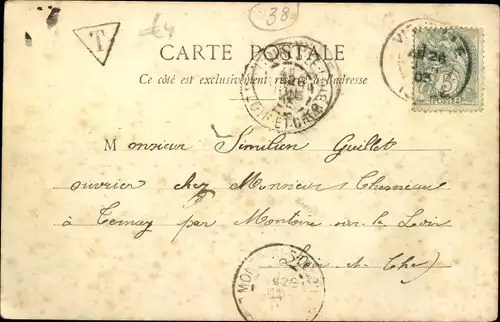 38
T
CARTE POSTALE
Ce côté est exclusivement réservé à l'adresse
Monsieur Similien Guillet
ouvrier chez Monsieur Chesneau
à Ternay par Montoire sur le Loir
Loir et Cher)
LOIR ET CHER
5
POSTES